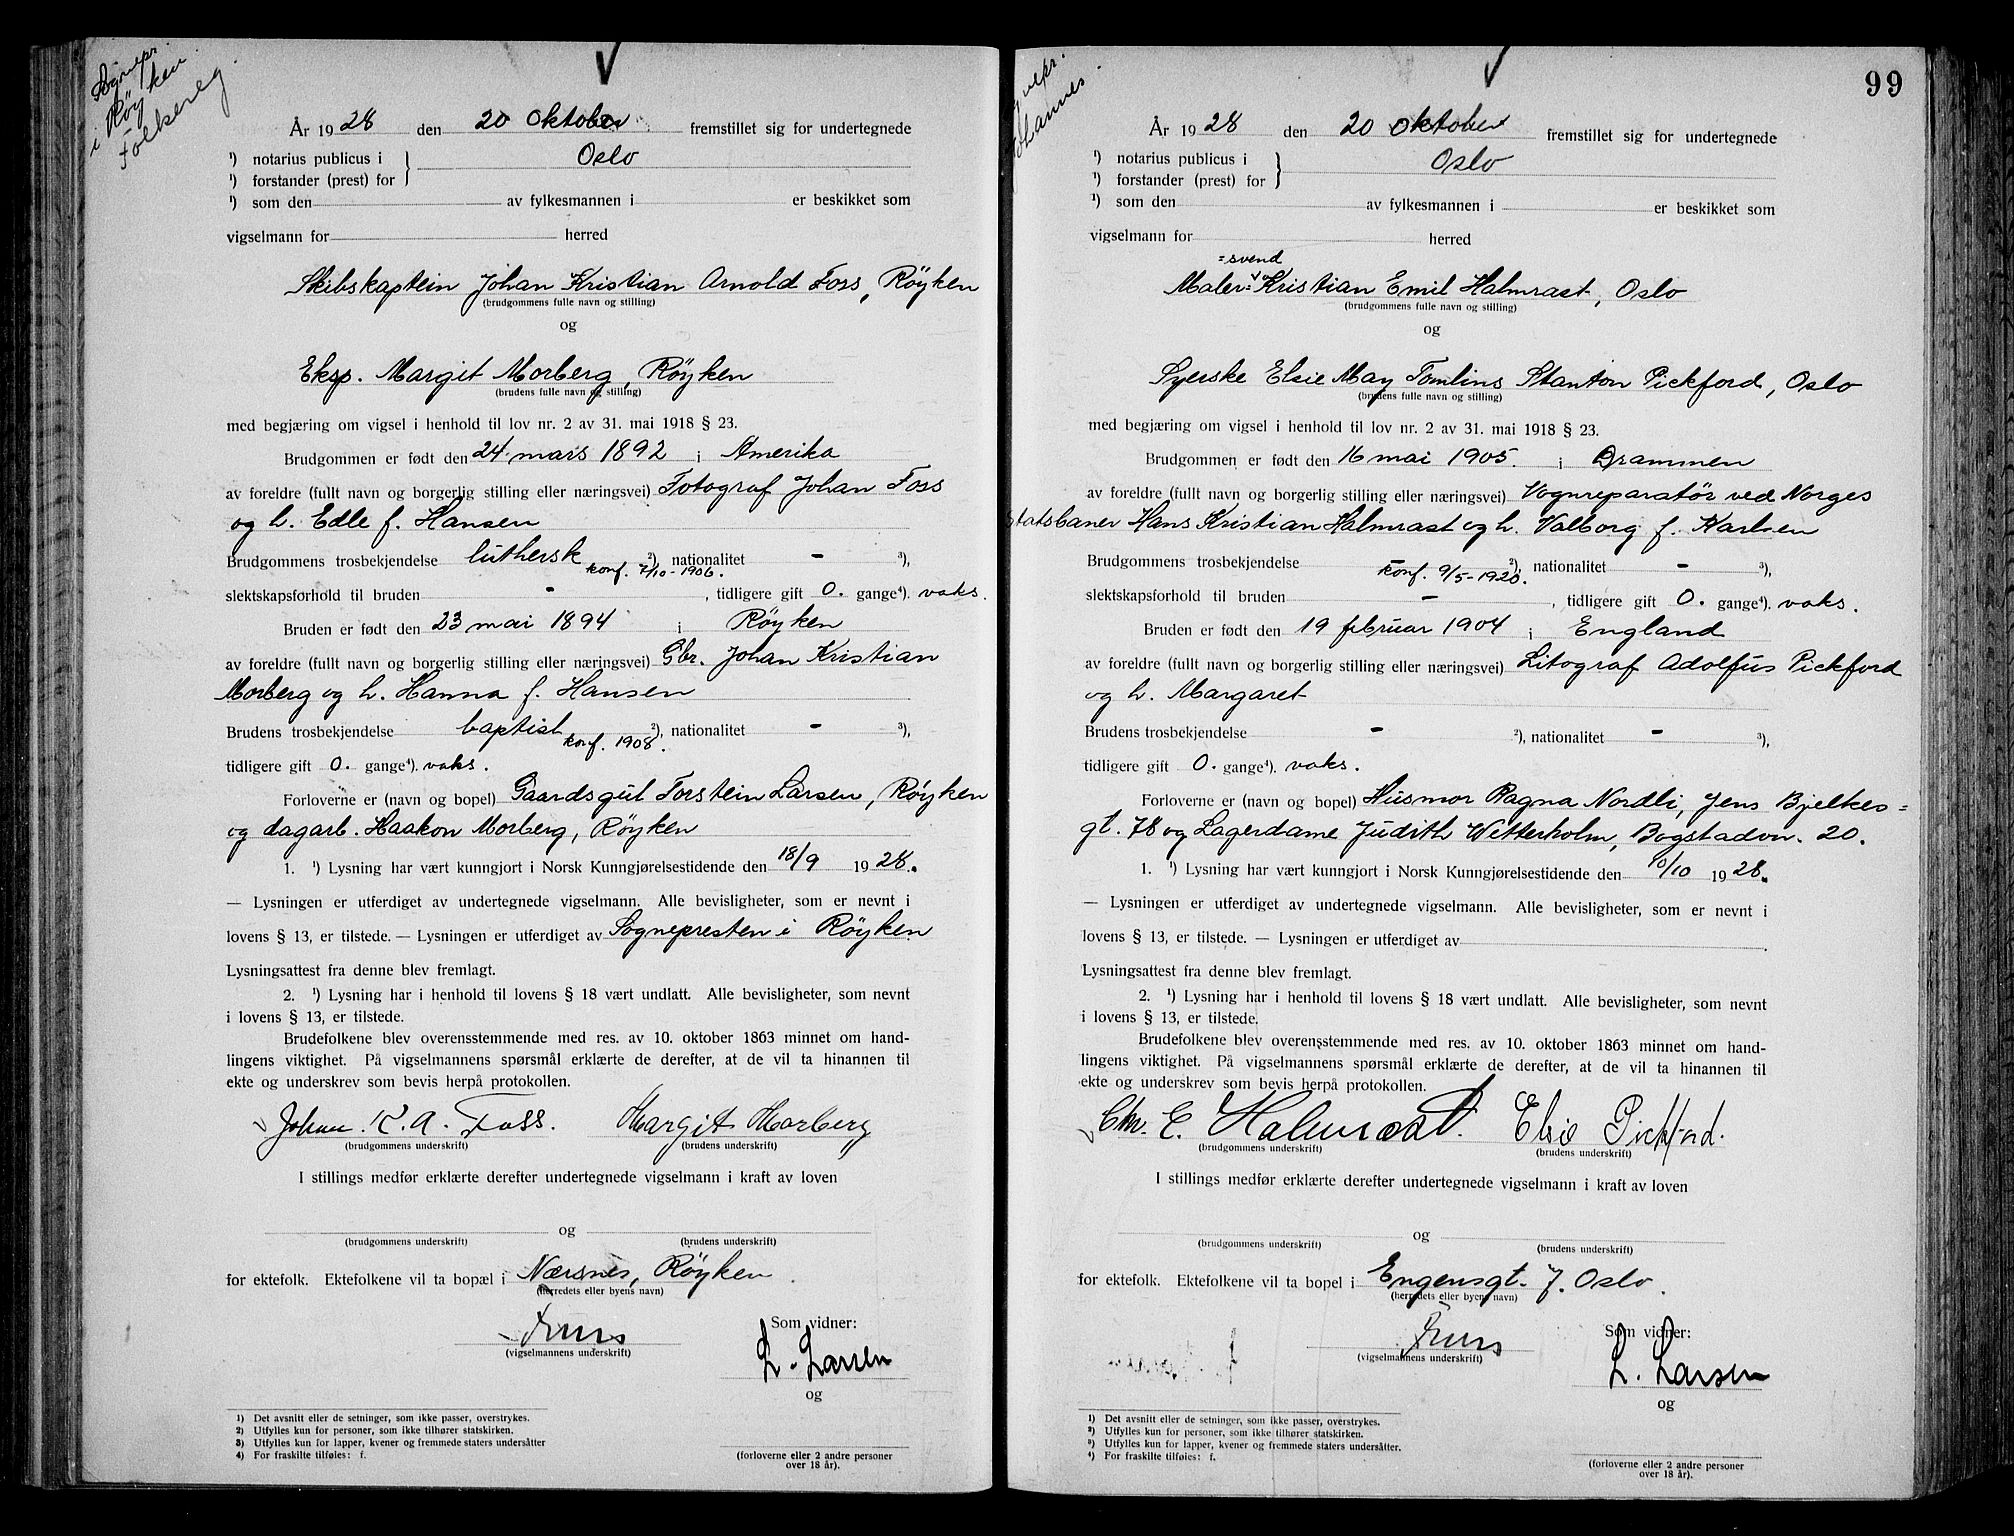 Sognepr.
i Røyken
Folkereg.
År 1928 den 20 Oktober fremstillet sig for undertegnede
¹) notarius publicus i
Oslo
¹) forstander (prest) for
¹) som den av fylkesmannen i er beskikket som
vigselmann for herred
Skibskaptein Johan Kristian Arnold Foss, Røyken
(brudgommens fulle navn og stilling)
og
Eksp. Margit Morberg, Røyken
(brudens fulle navn og stilling)
med begjæring om vigsel i henhold til lov nr. 2 av 31. mai 1918 § 23.
Brudgommen er født den 24. mars 1892 i Amerika
av foreldre (fullt navn og borgerlig stilling eller næringsvei) Fotograf Johan Foss
og h. Edle f. Hansen
Brudgommens trosbekjendelse luthersk ²), nationalitet - ³),
konf. 7/10-1906.
slektskapsforhold til bruden - , tidligere gift 0. gange⁴). vaks.
Bruden er født den 23 mai 1894 i Røyken
av foreldre (fullt navn og borgerlig stilling eller næringsvei) Gbr. Johan Kristian
Morberg og h. Hanna f. Hansen
Brudens trosbekjendelse baptist ²), nationalitet - ³),
konf. 1908.
tidligere gift 0. gange⁴). vaks.
Forloverne er (navn og bopel) Gaardsgut Torstein Larsen, Røyken
og dagarb. Haakon Morberg, Røyken
1. ¹) Lysning har vært kunngjort i Norsk Kunngjørelsestidende den 18/9 1928.
— Lysningen er utferdiget av undertegnede vigselmann. Alle bevisligheter, som er nevnt i
lovens § 13, er tilstede. — Lysningen er utferdiget av Sognepresten i Røyken
Lysningsattest fra denne blev fremlagt.
2. ¹) Lysning har i henhold til lovens § 18 vært undlatt. Alle bevisligheter, som nevnt
i lovens § 13, er tilstede.
Brudefolkene blev overensstemmende med res. av 10. oktober 1863 minnet om hand-
lingens viktighet. På vigselmannens spørsmål erklærte de derefter, at de vil ta hinannen til
ekte og underskrev som bevis herpå protokollen.
Johan K. A. Foss. Margit Morberg
(brudgommens underskrift) (brudens underskrift)
I stillings medfør erklærte derefter undertegnede vigselmann i kraft av loven
og
(brudgommens underskrift) (brudens underskrift)
for ektefolk. Ektefolkene vil ta bopæl i Nærsnes, Røyken.
(herredets eller byens navn)
Som vidner:
(vigselmannens underskrift)
L. Larsen
og
1) Det avsnitt eller de setninger, som ikke passer, overstrykes.
2) Utfylles kun for personer, som ikke tilhører statskirken.
3) Utfylles kun for lapper, kvener og fremmede staters undersåtter
4) For fraskilte tilføies: f.
(forloverne eller 2 andre personer
over 18 år).
99
År 1928 den 20 Oktober fremstillet sig for undertegnede
¹) notarius publicus i
Oslo
¹) forstander (prest) for
¹) som den av fylkesmannen i er beskikket som
vigselmann for herred
=svend
Maler= Kristian Emil Halmrast, Oslo
(brudgommens fulle navn og stilling)
og
Syerske Elsie May Tomlins Stanton Pickford, Oslo
(brudens fulle navn og stilling)
med begjæring om vigsel i henhold til lov nr. 2 av 31. mai 1918 § 23.
Brudgommen er født den 16 mai 1905. i Drammen
av foreldre (fullt navn og borgerlig stilling eller næringsvei) Vognreparatør ved Norges
Statsbaner Hans Kristian Halmrast og h. Valborg f. Karlsen
Brudgommens trosbekjendelse ²), nationalitet - ³),
konf. 9/5-1920.
slektskapsforhold til bruden - , tidligere gift 0. gange⁴). vaks.
Bruden er født den 19 februar 1904 i England
av foreldre (fullt navn og borgerlig stilling eller næringsvei) Litograf Adolfus Pickford
og h. Margaret
Brudens trosbekjendelse - ²), nationalitet - ³),
tidligere gift 0. gange⁴). vaks.
Forloverne er (navn og bopel) Husmor Ragna Nordli, Jens Bjelkes=
gt. 78 og Lagerdame Judith Wetterholm, Bogstadvn. 20.
1. ¹) Lysning har vært kunngjort i Norsk Kunngjørelsestidende den /10 1928.
— Lysningen er utferdiget av undertegnede vigselmann. Alle bevisligheter, som er nevnt i
lovens § 13, er tilstede. — Lysningen er utferdiget av
Lysningsattest fra denne blev fremlagt.
2. ¹) Lysning har i henhold til lovens § 18 vært undlatt. Alle bevisligheter, som nevnt
i lovens § 13, er tilstede.
Brudefolkene blev overensstemmende med res. av 10. oktober 1863 minnet om hand-
lingens viktighet. På vigselmannens spørsmål erklærte de derefter, at de vil ta hinannen til
ekte og underskrev som bevis herpå protokollen.
Chr. E. Halmrast. Elsie Pickford.
(brudgommens underskrift) (brudens underskrift)
I stillings medfør erklærte derefter undertegnede vigselmann i kraft av loven
og
(brudgommens underskrift) (brudens underskrift)
for ektefolk. Ektefolkene vil ta bopel i Engensgt. 7. Oslo.
(herredets eller byens navn)
Som vidner:
(vigselmannens underskrift)
L. Larsen
og
1) Det avsnitt eller de setninger, som ikke passer, overstrykes.
2) Utfylles kun for personer, som ikke tilhører statskirken.
3) Utfylles kun for lapper, kvener og fremmede staters undersåtter.
4) For fraskilte tilføies: f.
(forloverne eller 2 andre personer
over 18 år).